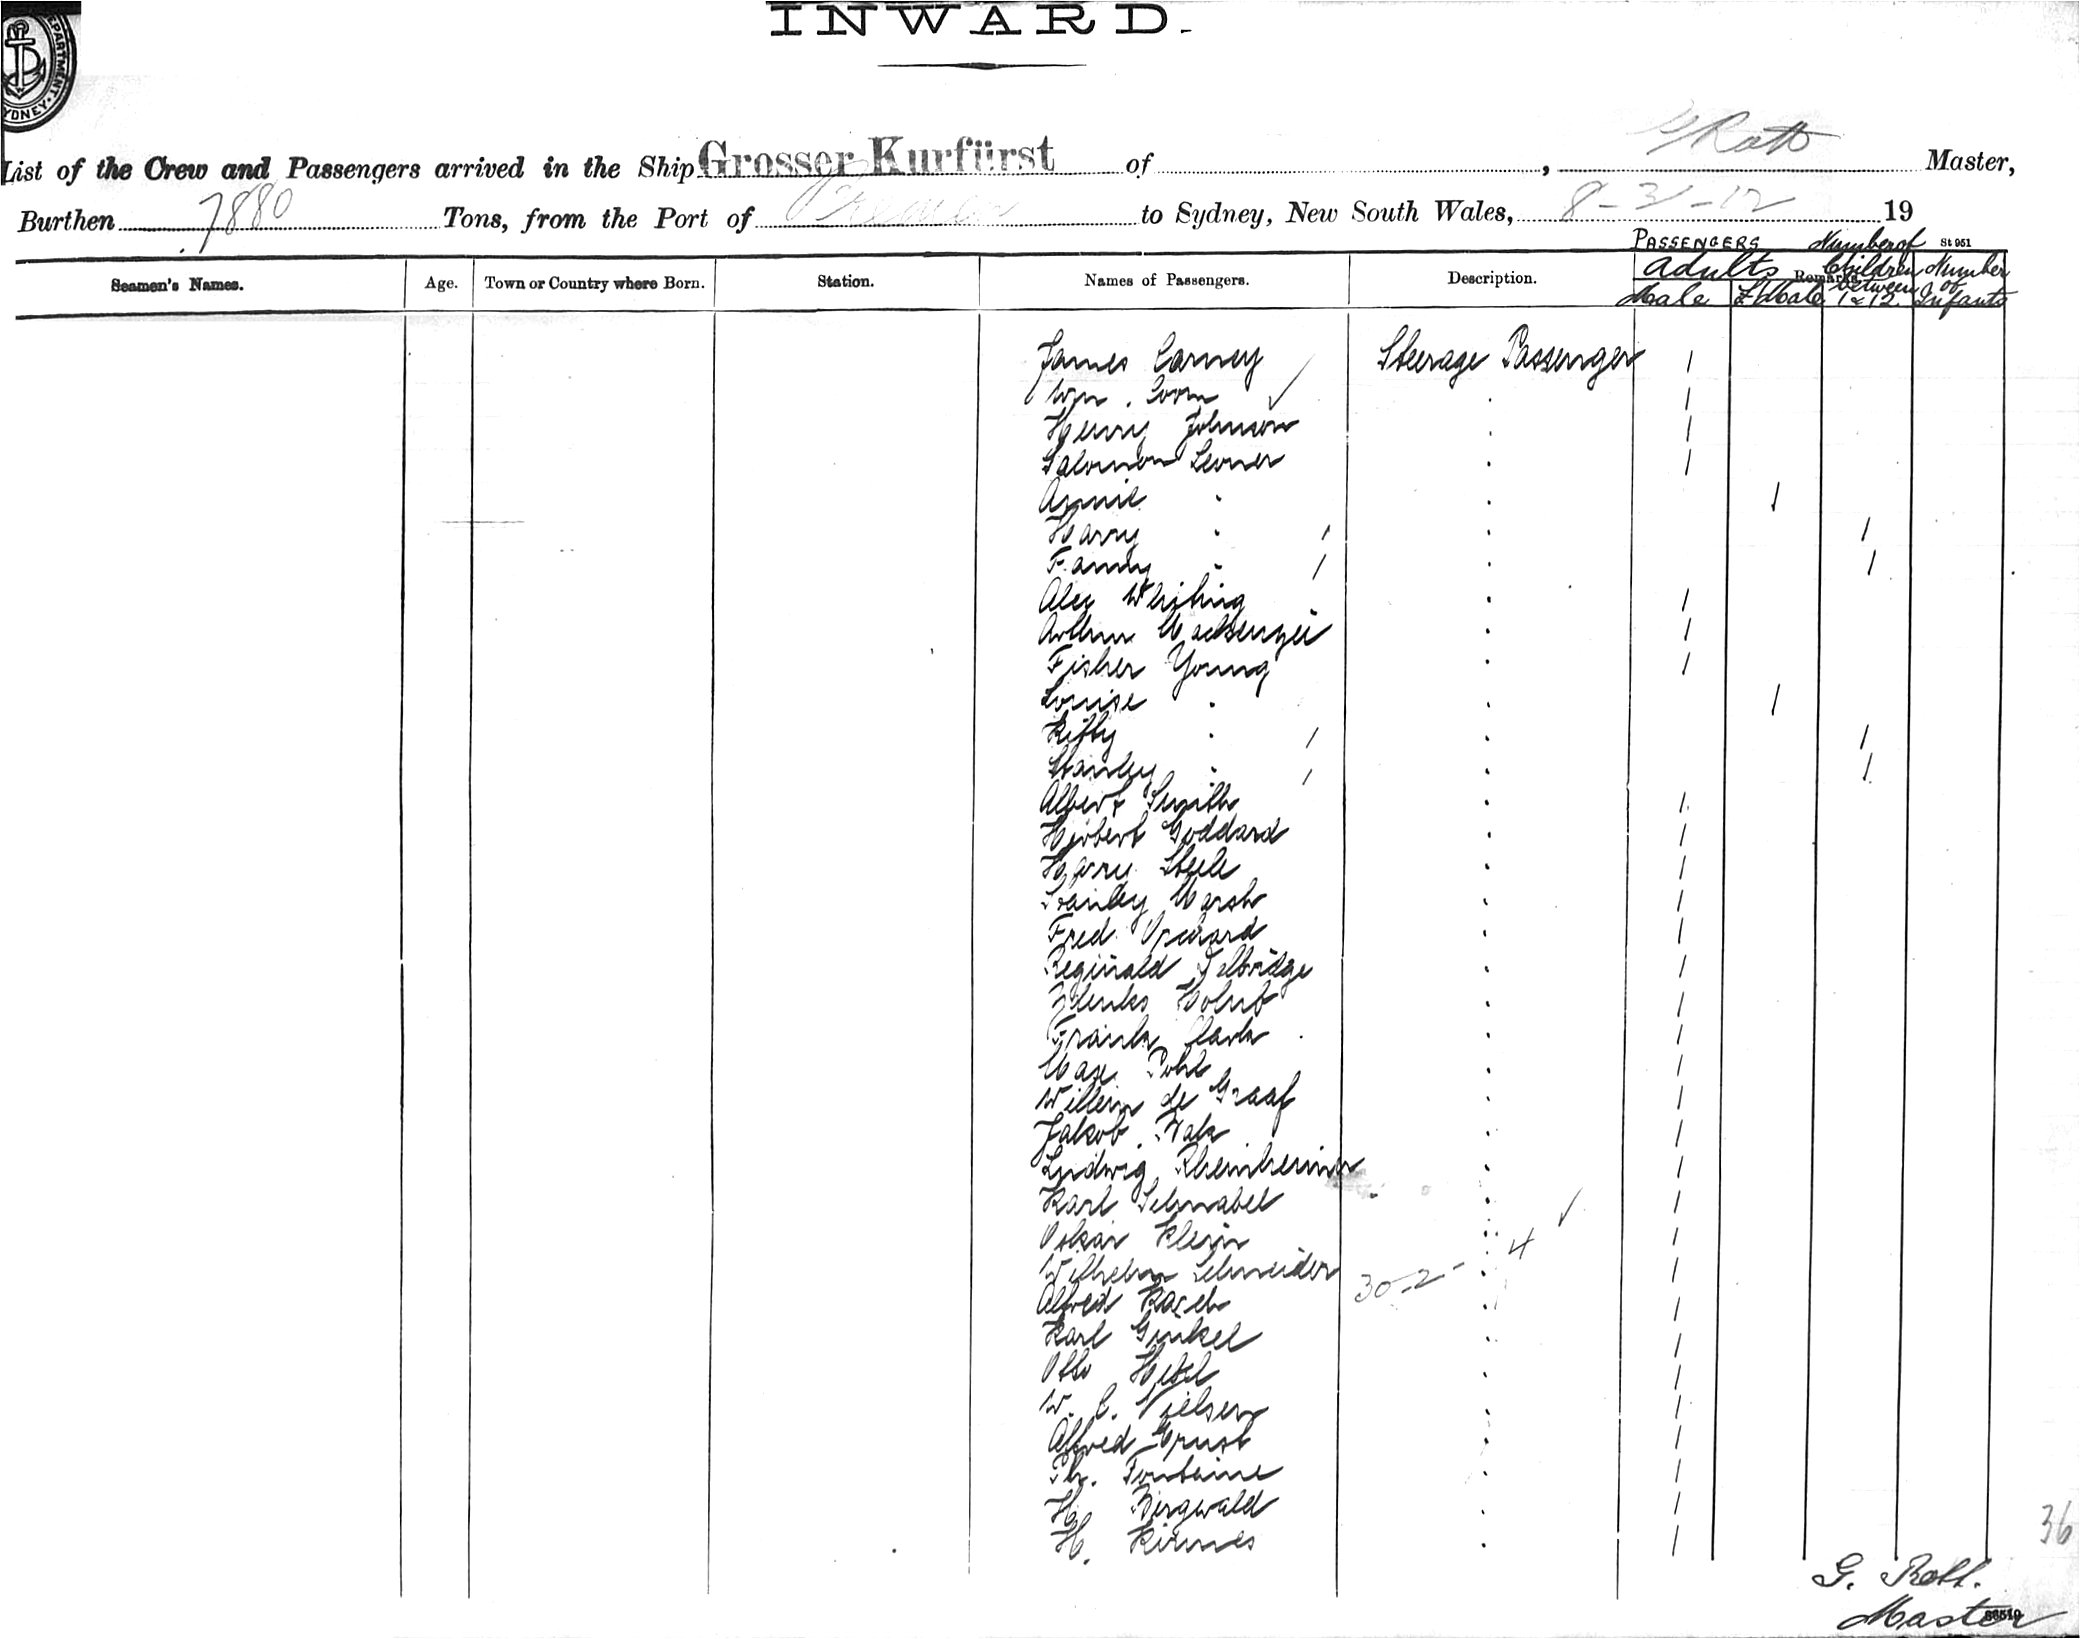 INWARD.
DEPARTMENT. SYDNEY.
List of the Crew and Passengers arrived in the Ship Grosser Kurfürst of , G Roth Master,
Burthen 7880 Tons, from the Port of Bremen to Sydney, New South Wales, 8-3-12 19
PASSENGERS Number of St 951
Seamen's Names. Age. Town or Country where Born. Station. Names of Passengers. Description. Remarks
Adults Children Number
Male F/Male between 1 & 12. of Infants
James Carney Steerage Passenger 1
Wm. Coom 1
Henry Johnson 1
Salomon Lerner 1
Annie " 1
Harry " 1
Fanny " 1
Alex Whiting 1
Arthur Mackenzie 1
Fisher Young 1
Louise " 1
Kitty " 1
Stanley " 1
Albert Smith 1
Herbert Goddard 1
Harry Steele 1
Stanley Marsh 1
Fred 1
Reginald 1
Holub 1
Frank Clark 1
Max Pohl 1
Willem de Graaf 1
Jakob Bak 1
Ludwig Rheinheimer 1
Karl Schnabel 1
Oskar Klein 1
Wilhelm Schneider 30-2 4 1
Alfred Karch 1
Karl Ginkel 1
Otto Hetzl 1
W. C. Nielsen 1
Alfred Ernst 1
Ph. Fontaine 1
H. Bergwald 1
H. Kirmes 1
36
G. Roth.
Master